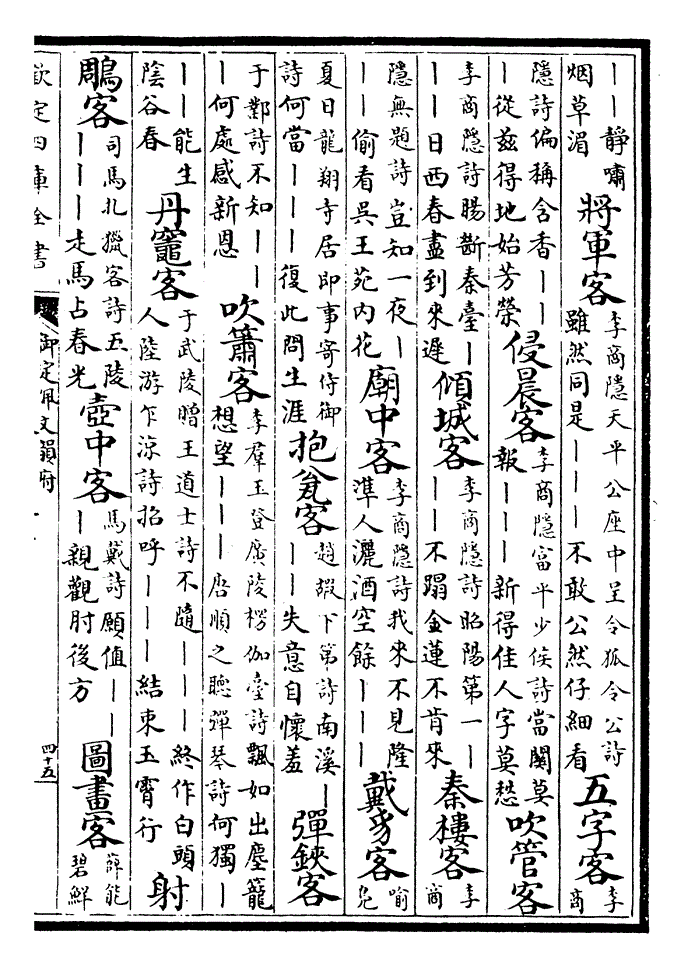 ｜｜靜嘯烟草湄 將軍客 李商隱天平公座中呈令狐令公詩雖然同是｜｜｜不敢公然仔細看 五字客 李商
隱詩偏稱含香｜｜｜從兹得地始芳榮 侵晨客 李商隱富平少侯詩當關莫報｜｜｜新得佳人字莫愁 吹管客
李商隱詩腸斷秦臺｜｜｜日西春盡到來遲 傾城客 李商隱詩昭陽第一｜｜｜不蹋金蓮不肯來 秦樓客 李商
隱無題詩豈知一夜｜｜｜偷看吳王苑内花 廟中客 李商隱詩我來不見隆準人灑酒空餘｜｜｜ 戴豸客 喻凫
夏日龍翔寺居即事寄侍御詩何當｜｜｜復此問生涯 抱瓮客 趙嘏下第詩南溪｜｜｜失意自懷羞 彈鋏客
于鄴詩不知｜｜｜何處感新恩 吹簫客 李羣玉登廣陵楞伽臺詩飄如出塵籠想望｜｜｜唐順之聽彈琴詩何獨｜
｜｜能生陰谷春 丹竈客 于武陵贈王道士詩不隨｜｜｜終作白頭人陸游乍涼詩招呼｜｜｜結束玉霄行 射
鵰客 司馬札獵客詩五陵｜｜｜走馬占春光 壺中客 馬戴詩願值｜｜｜親觀肘後方 圖畫客 薛能碧鮮
欽定四庫全書
御定佩文韻府
四十五